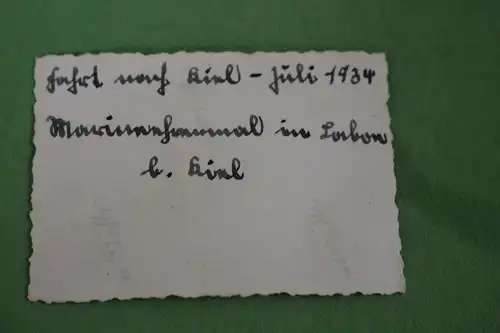 Fahrt nach Kiel - Juli 1934
Marineehrenmal in Laboe
b. Kiel